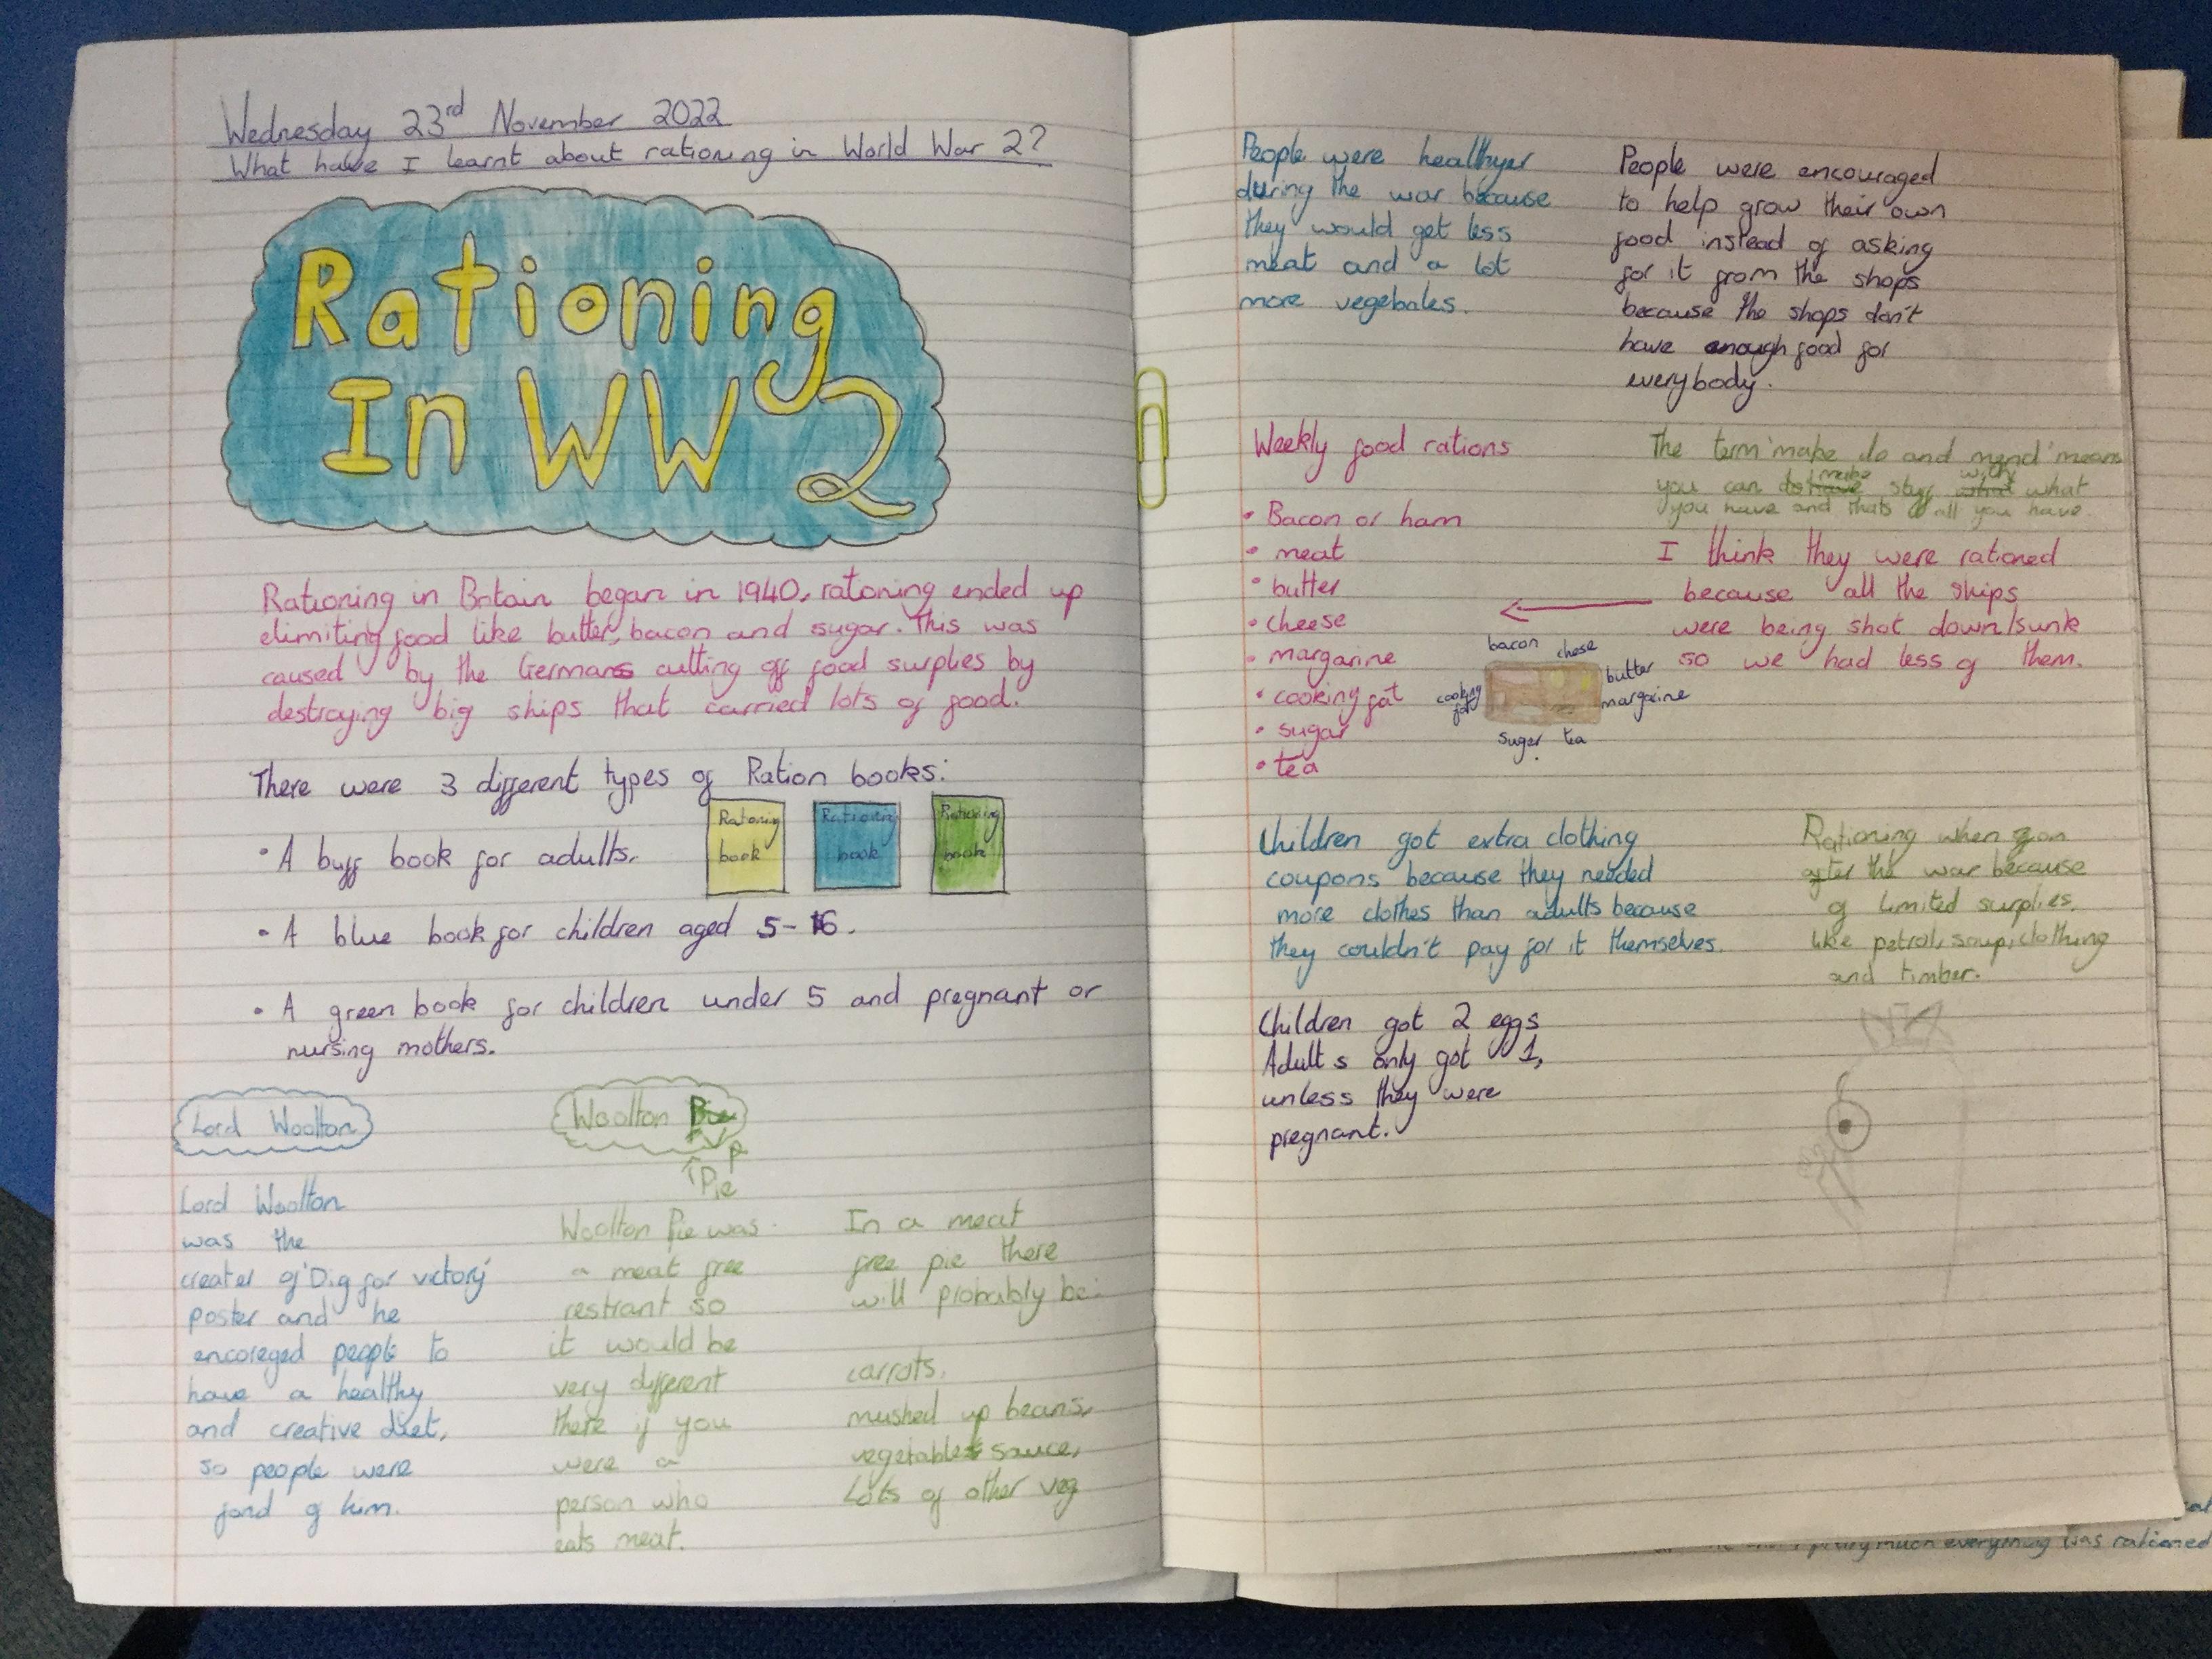 Wednesday 23rd November 2022
What have I learnt about rationing in World War 2?
Rationing
In WW2
Rationing in Britain began in 1940, rationing ended up
elimiting food like butter, bacon and sugar. This was
caused by the Germans cutting off food surplies by
destroying big ships that carried lots of food.
There were 3 different types of Ration books:
Rationing book
Rationing book
Rationing book
• A buff book for adults.
• A blue book for children aged 5-16.
• A green book for children under 5 and pregnant or
nursing mothers.
Lord Woolton
Lord Woolton
was the
creater of 'Dig for victory'
poster and he
encoreged people to
have a healthy
and creative diet,
so people were
fond of him.
Woolton Pie
Pie
Woolton Pie was
a meat free
restrant so
it would be
very different
there if you
were a
person who
eats meat.
In a meat
free pie there
will probably be:
carrots,
mushed up beans,
vegetable sauce,
Lots of other veg
People were healthyer
during the war because
they would get less
meat and a lot
more vegebales.
People were encouraged
to help grow their own
food instead of asking
for it from the shops
because the shops don't
have enough food for
everybody.
Weekly food rations
• Bacon or ham
• meat
• butter
• cheese
• margarine
• cooking fat
• sugar
• tea
The term 'make do and mend' means
you can make stuff with what
you have and thats all you have.
I think they were rationed
because all the ships
were being shot down/sunk
so we had less of them.
bacon chese
butter
margarine
cooking fat
suger tea
Children got extra clothing
coupons because they needed
more clothes than adults because
they couldn't pay for it themselves.
Rationing when on
after the war because
of limited surplies.
like petrol, soup, clothing
and timber.
Children got 2 eggs
Adults only got 1,
unless they were
pregnant.
much everything was rationed